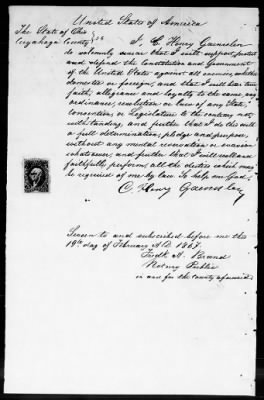 United States of America
The State of Ohio
Cuyahoga County } ss
I, C. Henry
do solemnly swear that I will support, protect
and defend the Constitution and Government
of the United States against all enemies, whether
domestic or foreign, and that I will bear true
faith, allegiance and loyalty to the same, any
ordinance, resolution or law of any State,
Convention or Legislature to the contrary not-
withstanding, and further that I do this with
a full determination, pledge and purpose,
without any mental reservation or evasion
whatsoever, and further that I will well and
faithfully perform all the duties which may
be required of me by law. So help me God.
C. Henry
Sworn to and subscribed before me this
19th day of February A.D. 1867.
Fredk A. Brand
Notary Public
in and for the County aforesaid